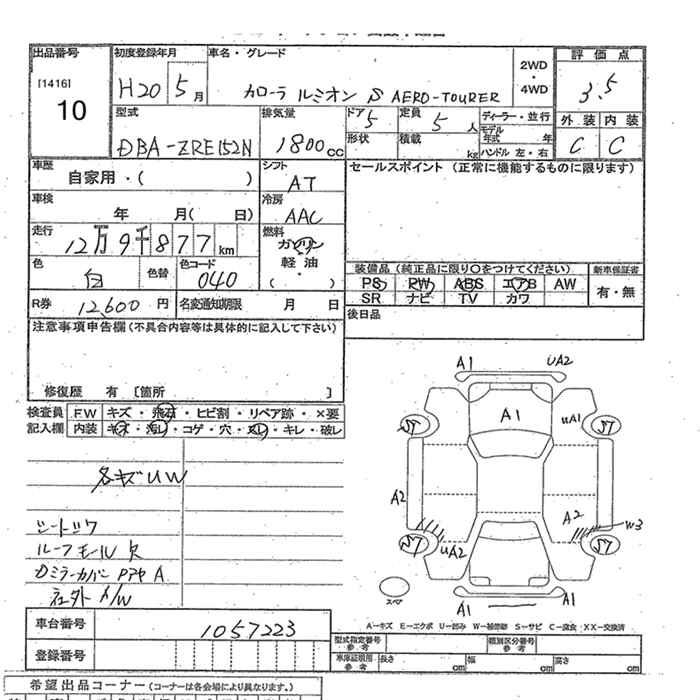 出品番号
[1416]
10
初度登録年月
H20 5月
車名・グレード
カローラ ルミオン S AERO-TOURER
2WD
・
4WD
評価点
3.5
外装 内装
C C
型式
DBA-ZRE152N
排気量
1800cc
ドア 5
形状
定員 5人
積載 kg
ディーラー・並行
モデル年式 年
ハンドル 左・右
車歴
自家用・( )
シフト
AT
車検
年 月( 日)
冷房
AAC
走行
12万9千877km
燃料
ガソリン
軽油
( )
色
白
色替
色コード
040
R券 12,600円
名変通知期限 月 日
セールスポイント (正常に機能するものに限ります)
装備品 (純正品に限り○をつけてください)
PS PW ABS エアB AW
SR ナビ TV カワ
新車保証書
有・無
後日品
注意事項申告欄(不具合内容等は具体的に記入して下さい)
修復歴 有 〔箇所 〕
検査員記入欄
FW キズ・飛石・ヒビ割・リペア跡・×要
内装 キズ・汚レ・コゲ・穴・スレ・キレ・破レ
各キズUW
シートツク
ルーフモール欠
A1 UA2
A1
UA1
ST ST
A2
A2
W3
UA2
ST ST
スペア
A1 A1
A-キズ E-エクボ U-凹み W-補修跡 S-サビ C-腐食 XX-交換済
車台番号
1057223
登録番号
型式指定番号 参考
類別区分番号 参考
車庫証明用 参考
長さ cm
幅 cm
高さ cm
希望出品コーナー (コーナーは各会場により異なります。)